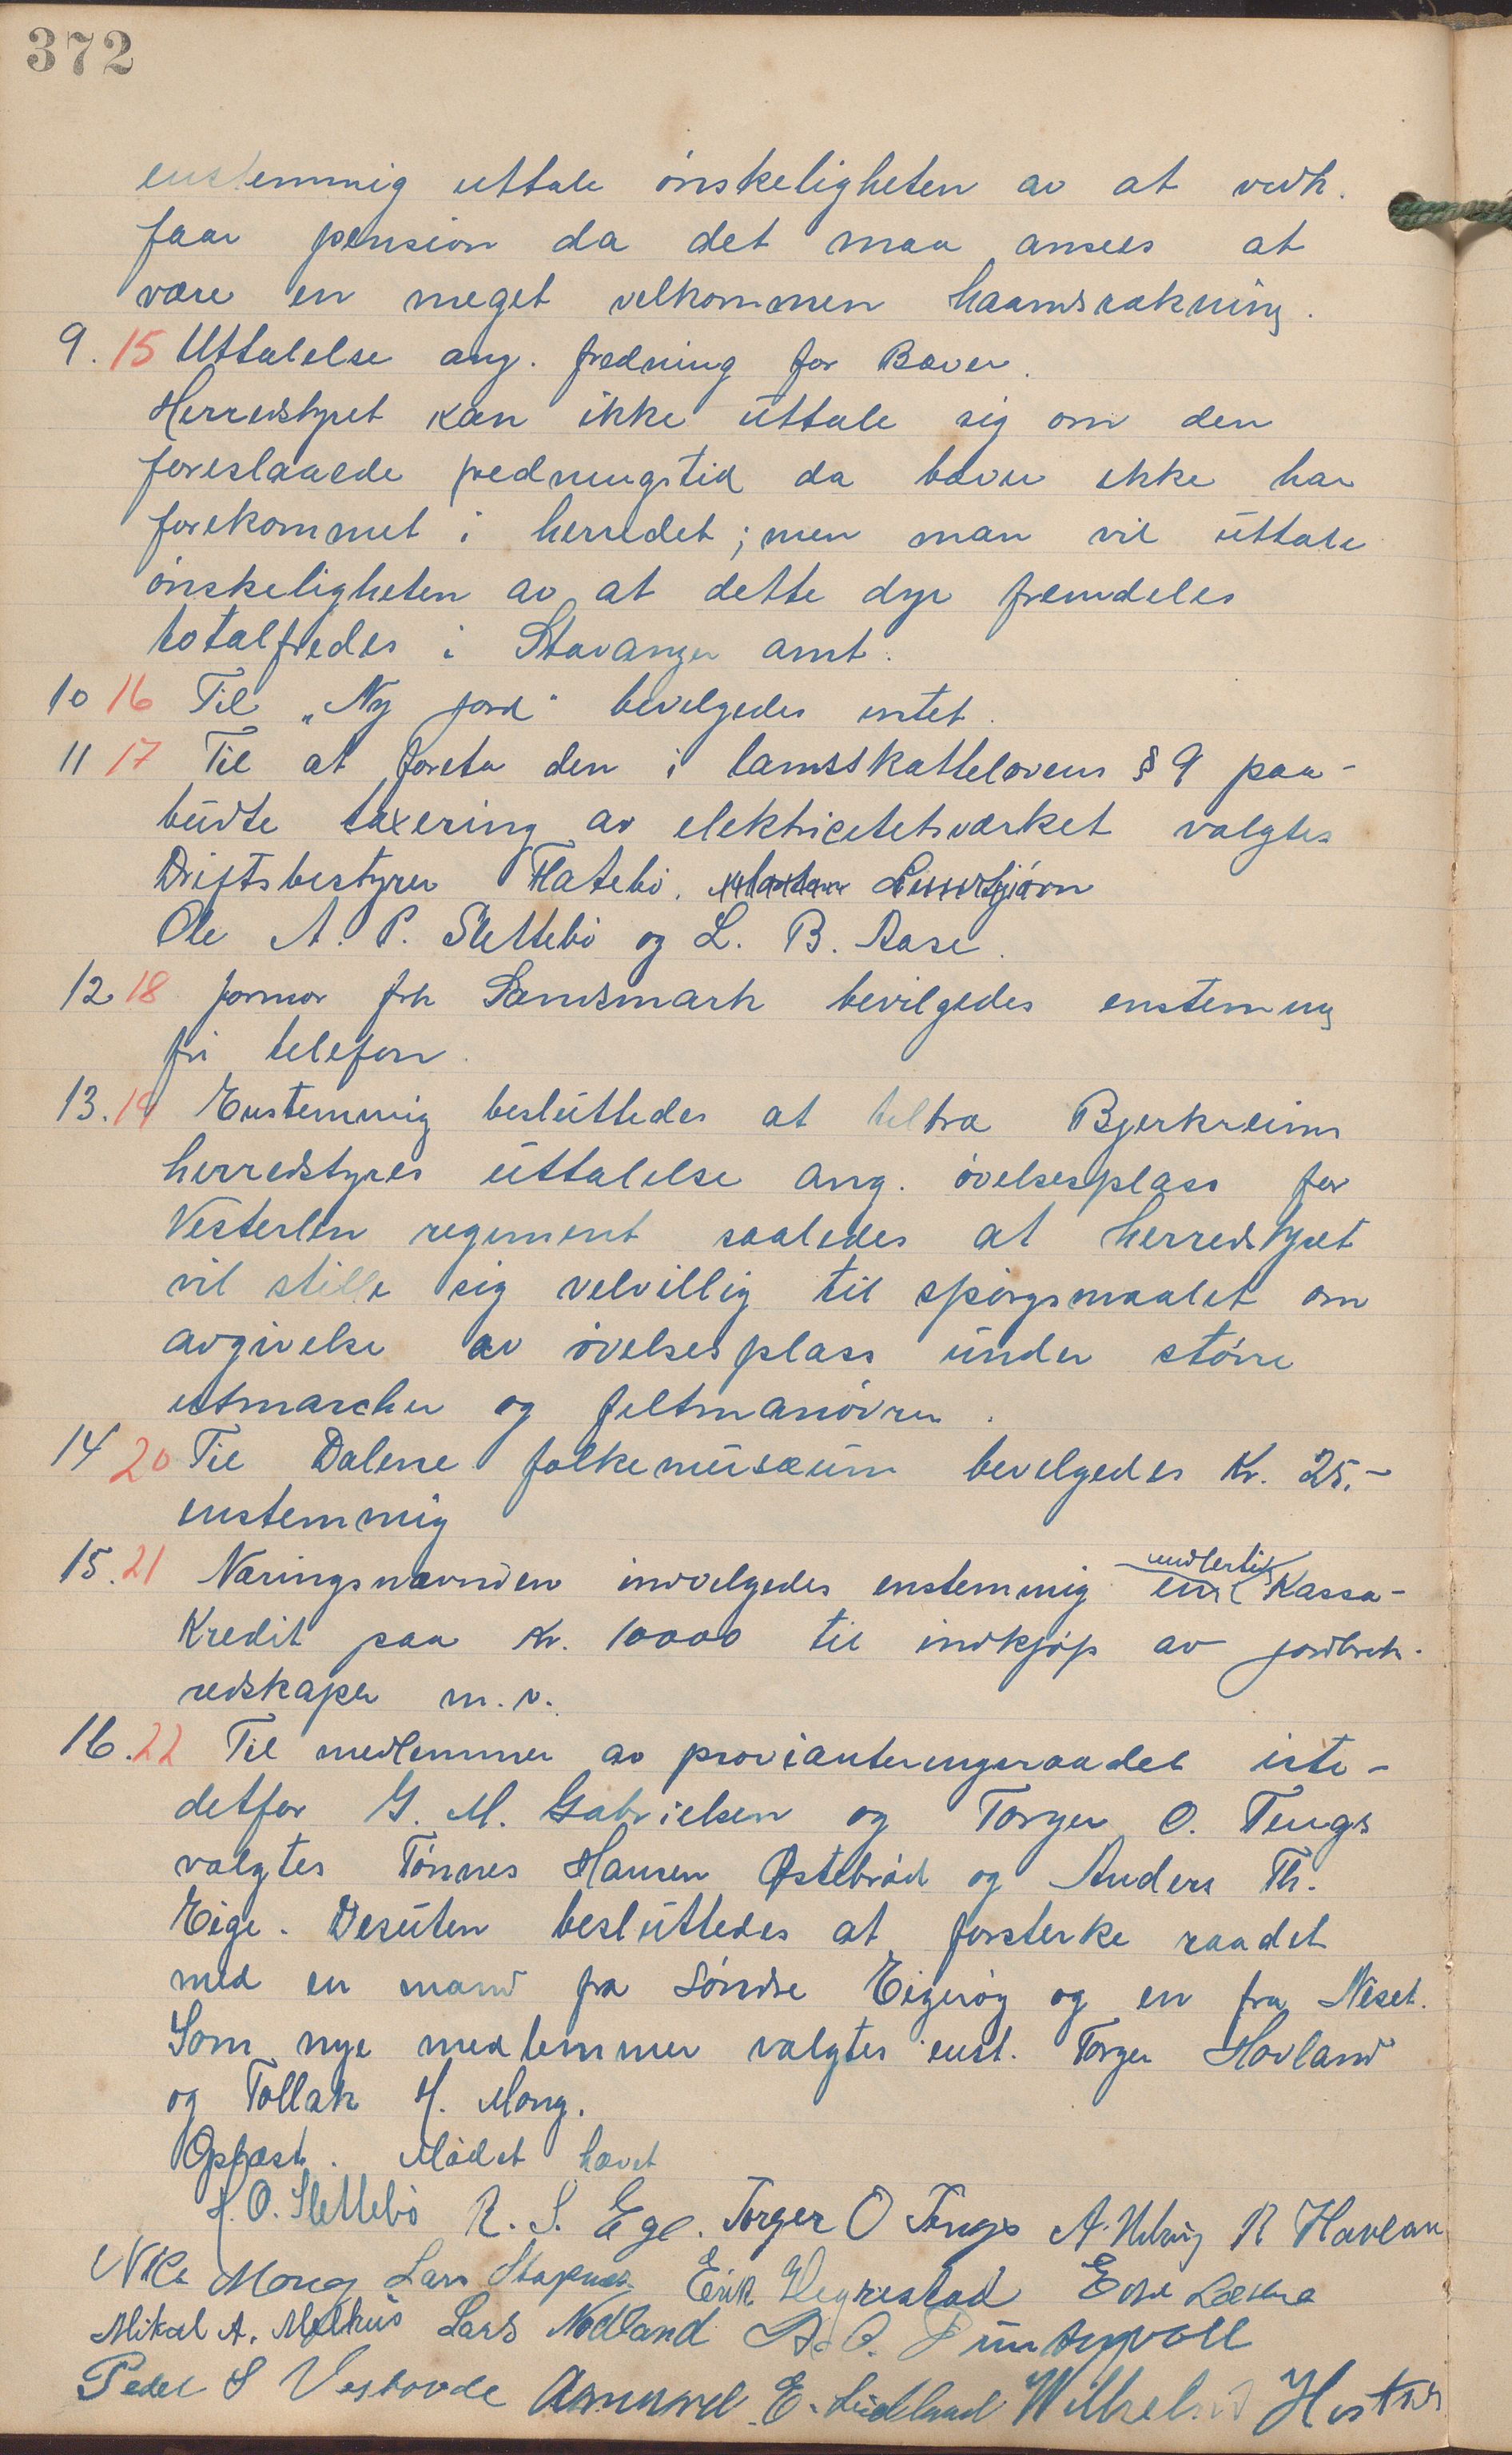 372
enstemmig uttale ønskeligheten av at vedk.
faar pension da det maa ansees at
være en meget velkommen haandsrækning.
9. 15 Uttalelse ang. fredning for Bæver.
Herredstyret kan ikke uttale sig om den
foreslaaede fredningstid da bæver ikke har
forekommet i herredet; men man vil uttale
ønskeligheten av at dette dyr fremdeles
totalfredes i Stavanger amt.
10 16 Til "Ny jord" bevilgedes intet.
11 17 Til at foreta den i landsskattelovens § 9 paa-
budte taxering av elektricitetsværket valgtes
Driftsbestyrer Flatebø,
Ole A. P. Slettebø og L. B. Aase.
12 18 Jormor frk Landsmark bevilgedes enstemmig
fri telefon.
13. 19 Enstemmig besluttedes at tiltræ Bjerkreims
herredstyres uttalelse ang. øvelsesplass for
Vesterlen regiment saaledes at herredstyret
vil stille sig velvillig til spørgsmaalet om
avgivelse av øvelsesplass under større
utmarcher og feltmanøvrer.
14 20 Til Dalene folkemusæum bevilgedes Kr. 25.-
enstemmig
15. 21 Næringsnævnden indvilgedes enstemmig en midlertidig Kassa-
Kredit paa Kr. 10000 til indkjøp av jordbruks-
redskaper m. v.
16. 22 Til medlemmer av provianteringsraadet iste-
detfor G. M. Gabrielsen og Torger O. Tengs
valgtes Tønnes Hansen Østebrød og Anders Th.
Eige. Desuten besluttedes at forsterke raadet
med en mand fra Søndre Eigerøy og en fra Neset.
Som nye medlemmer valgtes enst. Torger Hovland
og Tollak H. Mong.
Oplæst. Mødet hævet
H. O. Slettebø R. S. Ege. Torger O Tengs A. R Havlan
Nils Mong Lars Stapnes Eirik Hegrestad
Mikal A. Melhus Lars Nodland
Peder S Vestbovde E. Lædland Wilhelm